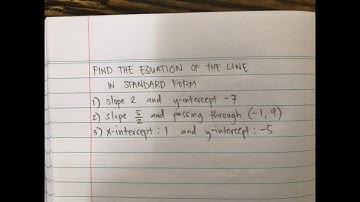 FIND THE EQUATION OF THE LINE
IN STANDARD FORM
1) slope 2 and y-intercept -7
2) slope 5/2 and passing through (-1, 9)
3) x-intercept : 1 and y-intercept : -5